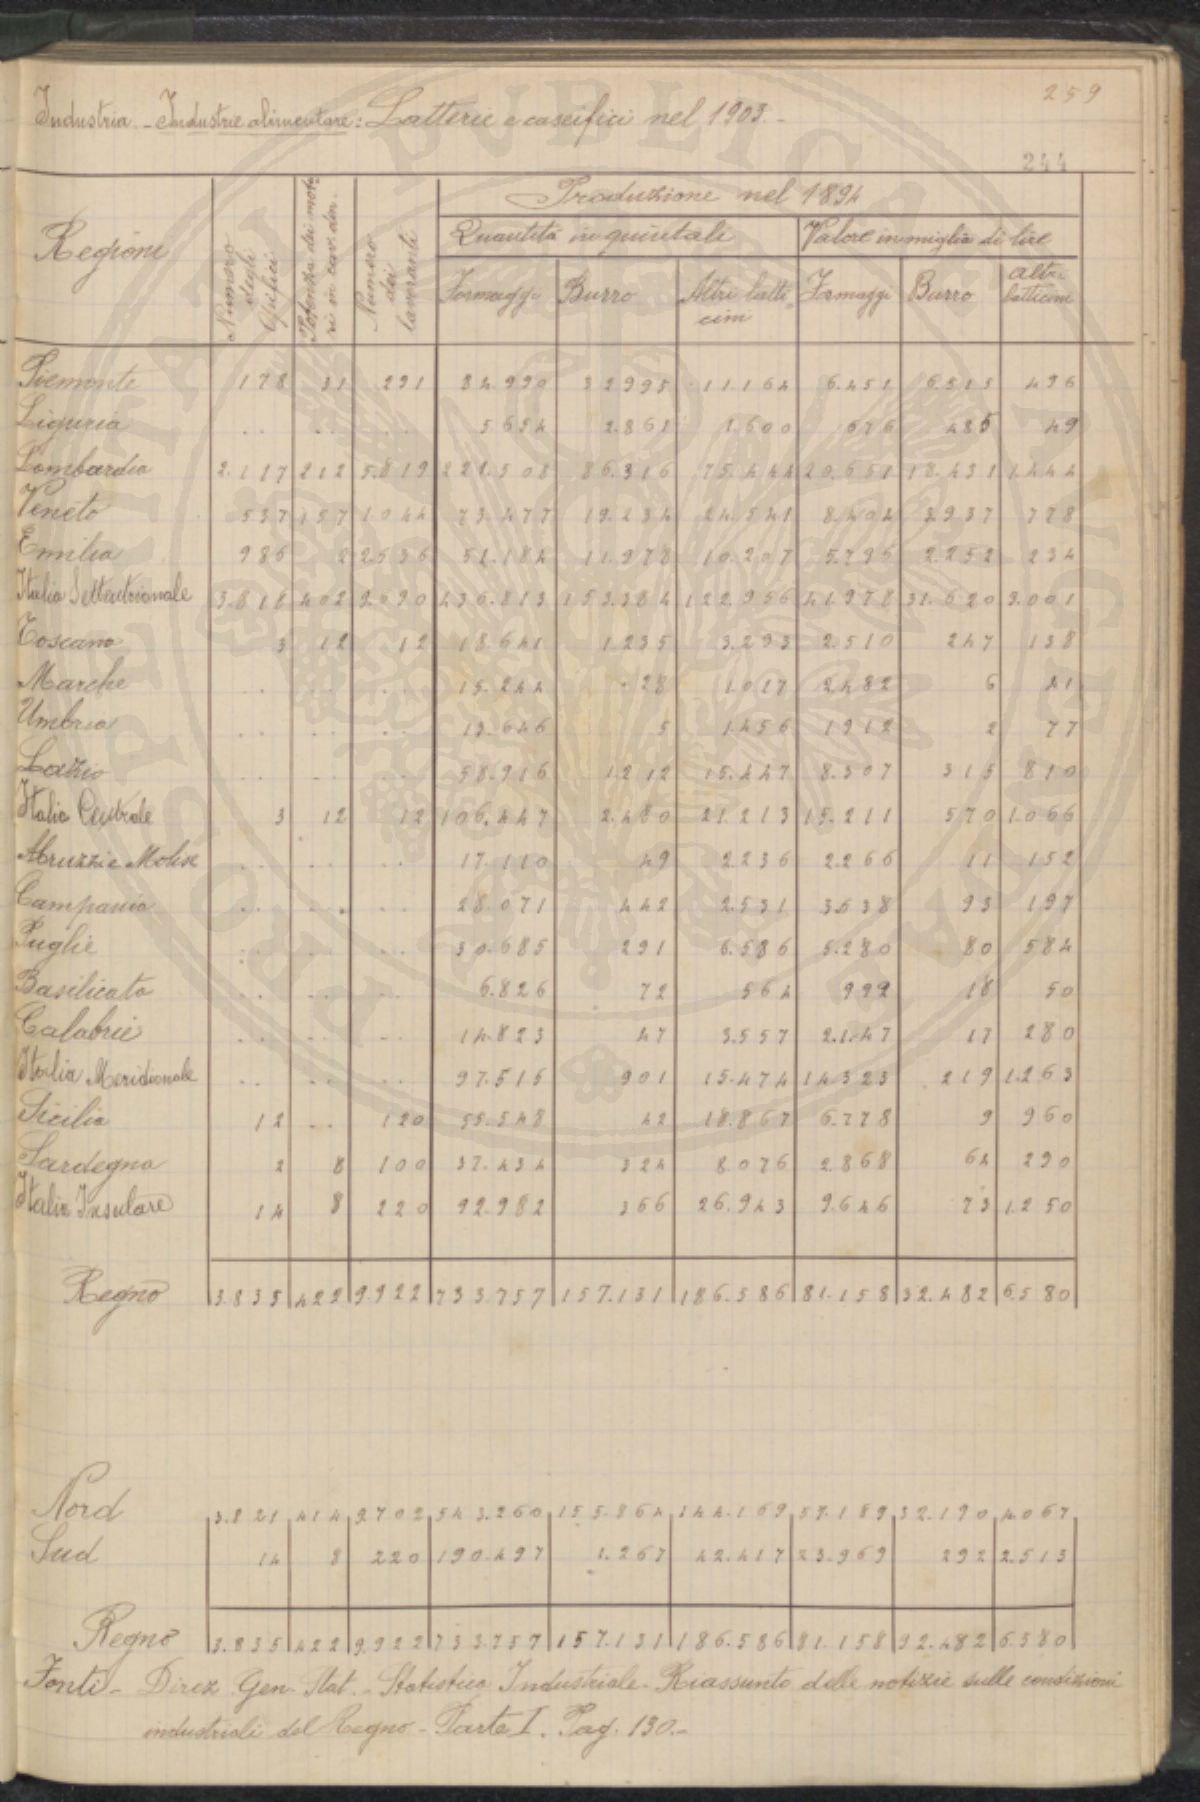 259
Industria - Industrie alimentare: Latterie e caseifici nel 1903.-
244
Regioni | Numero degli Opifici | Potenza dei motori in cav. din. | Numero dei lavoranti | Produzione nel 1894
Quantità in quintali | Valore in miglia di lire
Formaggi | Burro | Altri latticini | Formaggi | Burro | altri latticini
Piemonte 178 31 291 84.990 32995 11164 6.451 6.515 496
Liguria .. .. .. 5654 2.861 1.600 676 485 49
Lombardia 2.117 212 5.819 222.508 86.316 75.444 20.651 18.431 1.444
Veneto 537 157 1044 73.477 19.234 24.541 8.404 3.937 778
Emilia 986 2 2.536 51.184 11.978 10.207 5.796 2.252 234
Italia Settentrionale 3.818 402 9.690 436.813 153.384 122.956 41.978 31.620 3.001
Toscana 3 12 12 18.641 1235 3.293 2.510 247 138
Marche .. .. .. 15.244 28 1.017 2.482 6 41
Umbria .. .. .. 13.646 5 1.456 1912 2 77
Lazio .. .. .. 58.916 1.212 15.447 8.307 315 810
Italia Centrale 3 12 12 106.447 2.480 21.213 15.211 570 1.066
Abruzzi e Molise .. .. .. 17.110 49 2.236 2.266 11 152
Campania .. .. .. 28.071 442 2.531 3.638 93 197
Puglie .. .. .. 30.685 291 6.586 5.280 80 584
Basilicata .. .. .. 6.826 72 564 992 18 50
Calabrie .. .. .. 14.823 47 3.557 2.147 17 280
Italia Meridionale .. .. .. 97.515 901 15.474 14.323 219 1.263
Sicilia 12 .. 120 55.548 42 18.867 6.778 9 960
Sardegna 2 8 100 37.434 324 8.076 2.868 64 290
Italia Insulare 14 8 220 92.982 366 26.943 9.646 73 1.250
Regno 3.835 422 9.922 733.757 157.131 186.586 81.158 32.482 6.580
Nord 3.821 414 9.702 543.260 155.864 144.169 57.189 32.190 4.067
Sud 14 8 220 190.497 1.267 42.417 23.969 292 2.513
Regno 3.835 422 9.922 733.757 157.131 186.586 81.158 32.482 6.580
Fonti - Direz. Gen. Stat. - Statistica Industriale - Riassunto delle notizie sulle condizioni
industriali del Regno - Parte I. Pag. 130.-